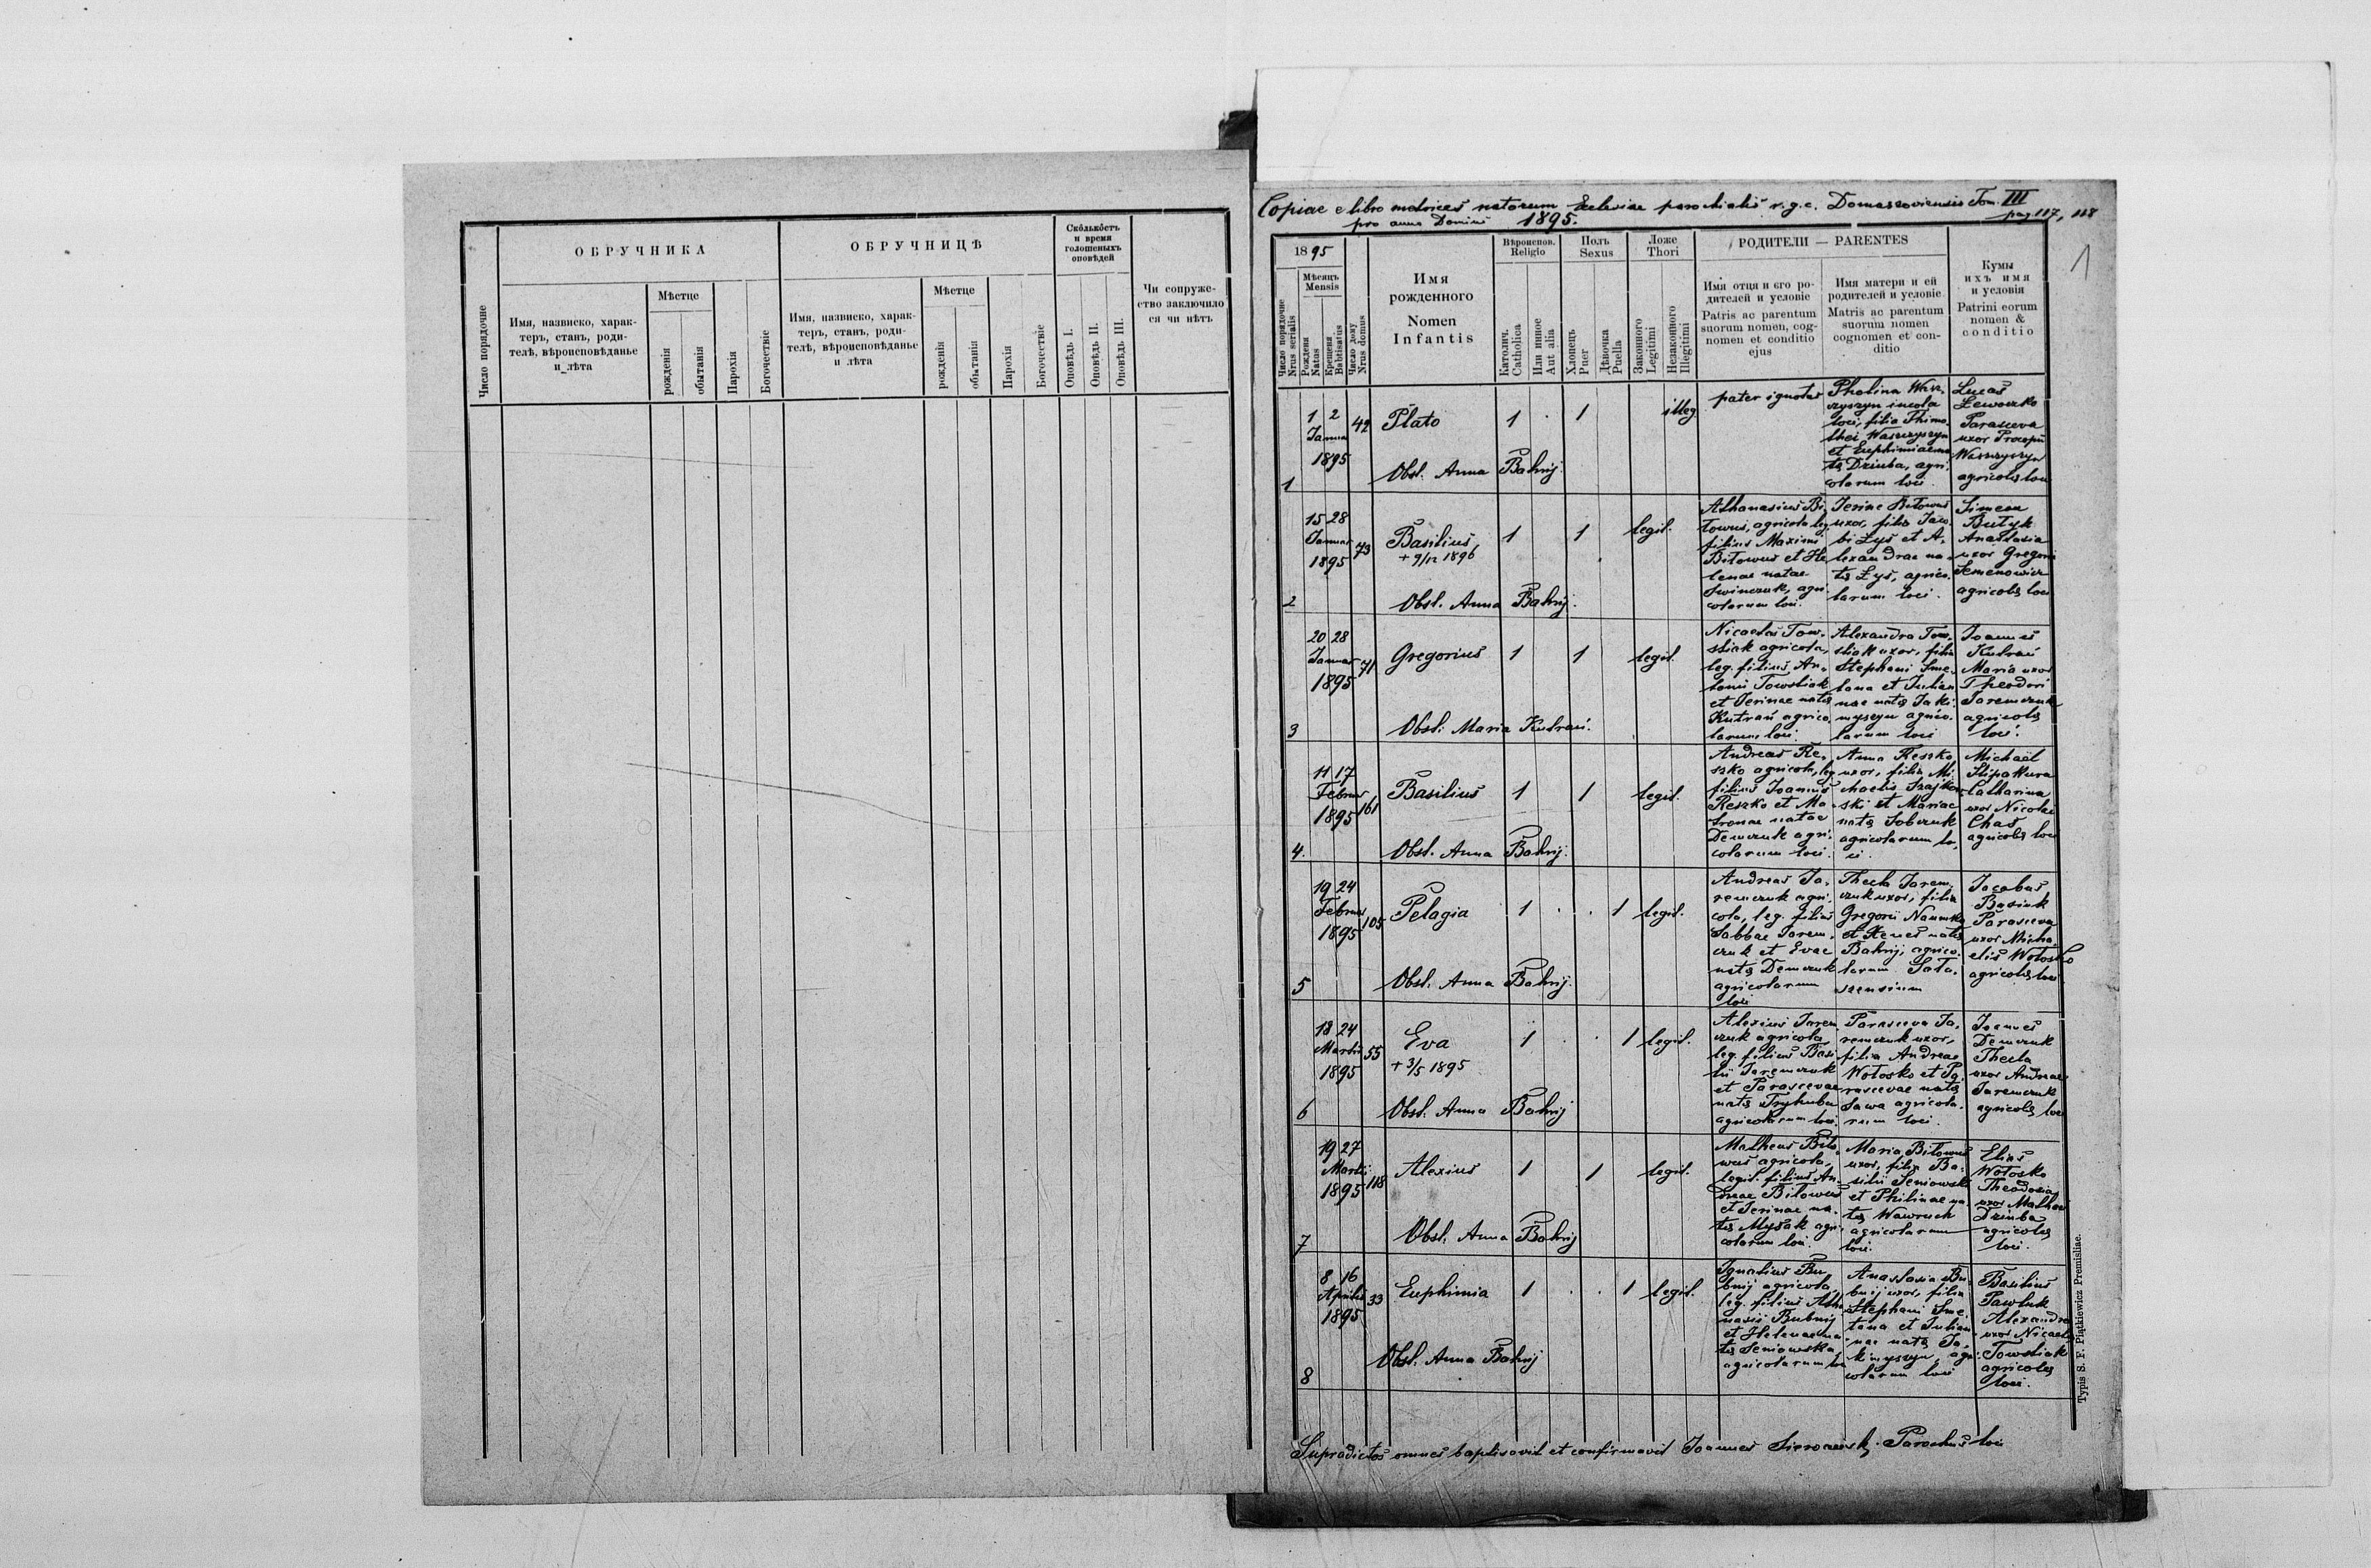 ОБРУЧНИКА
ОБРУЧНИЦѢ
Сколькость
и время
голошеныхъ
оповѣдей
Число порядочне
Имя, назвиско, харак-
теръ, станъ, роди-
телѣ, вѣроисповѣданье
и лѣта
Мѣстце
рожденія
обытанія
Парохія
Богочествіе
Имя, назвиско, харак-
теръ, станъ, роди-
телѣ, вѣроисповѣданье
и лѣта
Мѣстце
рожденія
обытанія
Парохія
Богочествіе
Оповѣдь I.
Оповѣдь II.
Оповѣдь III.
Чи сопруже-
ство заключило
ся чи нѣтъ
Copiae e libro metrices natorum Ecclesiae parochialis r.g.c. Domaszoviensis Tom. III
pro anno Domini 1895. pag. 117, 118
1
1895
Число порядочне
Nrus serialis
Мѣсяцъ
Mensis
Рожденя
Natus
Крещеня
Babtisatus
Число дому
Nrus domus
Имя
рожденного
Nomen
Infantis
Вѣроиспов.
Religio
Католич.
Catholica
Или инное
Aut alia
Полъ
Sexus
Хлопець
Puer
Дѣвочка
Puella
Ложе
Thori
Законного
Legitimi
Незаконного
Illegitimi
РОДИТЕЛИ — PARENTES
Имя отця и его ро-
дителей и условіе
Patris ac parentum
suorum nomen, cog-
nomen et conditio
ejus
Имя матери и ей
родителей и условіе
Matris ac parentum
suorum nomen
cognomen et con-
ditio
Кумы
ихъ имя
и условія
Patrini eorum
nomen &
conditio
1
1 2
Januar
1895
42
Plato
1 . 1
illeg
Obst. Anna Bahrij.
pater ignotus
Pholina Wasz-
czyszyn incola
loci, filia Thimo-
thei Waszczyszyn
et Euphimiae na-
tę Dziuba, agri-
colarum loci.
Lucas
Lewoszko
Parasceva
uxor Procopii
Waszczyszyn
agricolę loci
2
15 28
Januar
1895
73
Basilius
+ 9/12 1896
1 1
legit.
Obst. Anna Bahrij.
Athanasius Bi-
towus, agricola leg.
filius Maximi
Bitowus et He-
lenae natae
Swinczuk, agri-
colarum loci.
Ierine Bitowus
uxor, filia Jaco-
bi Łyś et A-
lexandrae na-
tę Łyś, agrico-
larum loci.
Simeon
Butyk
Anastasia
uxor Gregorii
Semenowicz
agricolę loci
3
20 28
Januar
1895
71
Gregorius
1 1
legit.
Obst. Maria Kutrań.
Nicolaus Tow-
stiak agricola,
leg. filius An-
tonii Towstiak
et Ierinae natę
Kutrań agrico-
larum loci
Alexandra Tow-
stiak uxor, filia
Stephani Sme-
tana et Julian-
nae natę Jaki-
myszyn agrico-
larum loci
Joannes
Kutrań
Maria uxor
Theodori
Jaremczuk
agricolę
loci.
4.
11 17
Februar
1895
161
Basilius
1 1
legit.
Obst. Anna Bahrij.
Andreas Re-
szko agricola, leg
filius Joannis
Reszko et Ma-
tronae natae
Demczuk agri-
colarum loci.
Anna Reszko
uxor, filia Mi-
chaelis Szajkow-
ski et Mariae
natę Sobczuk
agricolarum lo-
ci.
Michaël
Slipakura
Catharina
uxor Nicolai
Chaś
agricolę loci
5
19 24
Februar
1895
105
Pelagia
1 . . 1
legit.
Obst. Anna Bahrij.
Andreas Ja-
remczuk agri-
cola, leg. filius
Sabbae Jarem-
czuk et Evae
natę Demczuk
agricolarum
loci
Thecla Jarem-
czuk uxor, filia
Gregorii Naumko
et Xenes natę
Bahrij, agrico-
larum
Jacobus
Basiuk
Parasceva
uxor Micha-
elis Wołoszko
agricolę loci
6
18 24
Martii
1895
55
Eva
+ 3/5 1895
1 . . 1
legit.
Obst. Anna Bahrij
Alexius Jarem-
czuk agricola,
leg. filius Basi-
lii Jaremczuk
et Parascevae
natę Tryhuba
agricolarum loci.
Parasceva Ja-
remczuk uxor,
filia Andreae
Wołoszko et Pa-
rascevae natę
Sawa agricola-
rum loci.
Joannes
Demczuk
Thecla
uxor Andreae
Jaremczuk
agricolę loci
7
19 27
Martii
1895
118
Alexius
1 1
legit.
Obst. Anna Bahrij
Matheus Bito-
wus agricola,
legit. filius An-
dreae Bitowus
et Ierinae na-
tę Mysak agri-
colarum loci.
Maria Bitowus
uxor, filia Ba-
silii Seniowski
et Philinae na-
tę Wawruch
agricolarum
loci.
Elias
Wołoszko
Theodosia
uxor Mathaei
Dziuba
agricolę
loci.
8
8 16
Aprilis
1895
33
Euphimia
1 . . 1
legit.
Obst. Anna Bahrij
Ignatius Bu-
bnij agricola,
leg. filius Atha-
nasii Bubnij
et Helenae na-
tę Seniowska
agricolarum loci
Anastasia Bu-
bnij uxor, filia
Stephani Sme-
tana et Julian-
nae natę Ja-
kimyszyn, agri-
colarum loci
Basilius
Pawluk
Alexandra
uxor Nicolai
Towstiak
agricolę
loci.
Supradictos omnes baptisavit et confirmavit Joannes Sieroczyński Parochus loci
Typis S. F. Piątkiewicz Premisliae.